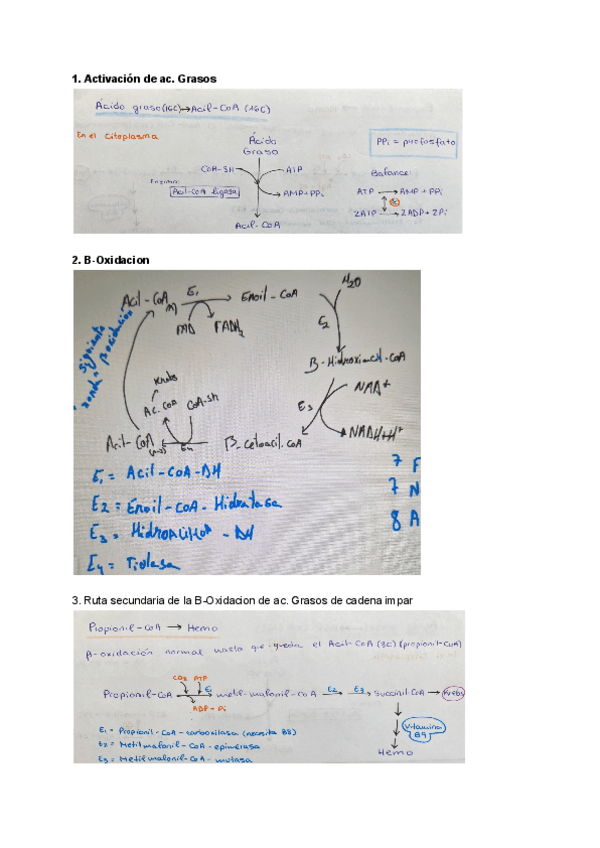 1. Activación de ac. Grasos
Ácido graso (16C) → Acil-CoA (16C)
En el citoplasma
Ácido
Graso
PPi = pirofosfato
CoA-SH
ATP
Balance:
Enzima:
Acil-CoA ligasa
AMP+PPi
ATP → AMP + PPi
2ATP → 2ADP + 2Pi
Acil-CoA
2. B-Oxidacion
Acil-CoA
(n)
E1
Enoil-CoA
H2O
FAD
FADH2
E2
Siguiente
ronda
β-Hidroxiacil-CoA
Krebs
NAD+
Ac. CoA
CoA-SH
E3
NADH+H+
Acil-CoA
E4
β-cetoacil-CoA
7 F
E1 = Acil-CoA-DH
7 N
E2 = Enoil-CoA-Hidratasa
8 A
E3 =
-DH
E4 = Tiolasa
3. Ruta secundaria de la B-Oxidacion de ac. Grasos de cadena impar
Propionil-CoA → Hemo
β-oxidación normal hasta que queda el Acil-CoA (3C) (propionil-CoA)
CO2 ATP
Propionil-CoA → metil-malonil-CoA → Succinil-CoA → Krebs
E1
E2
E3
ADP + Pi
E1 = Propionil-CoA-carboxilasa (necesita B8)
Vitamina
B9
E2 = Metilmalonil-CoA-epimerasa
Hemo
E3 = Metilmalonil-CoA-mutasa